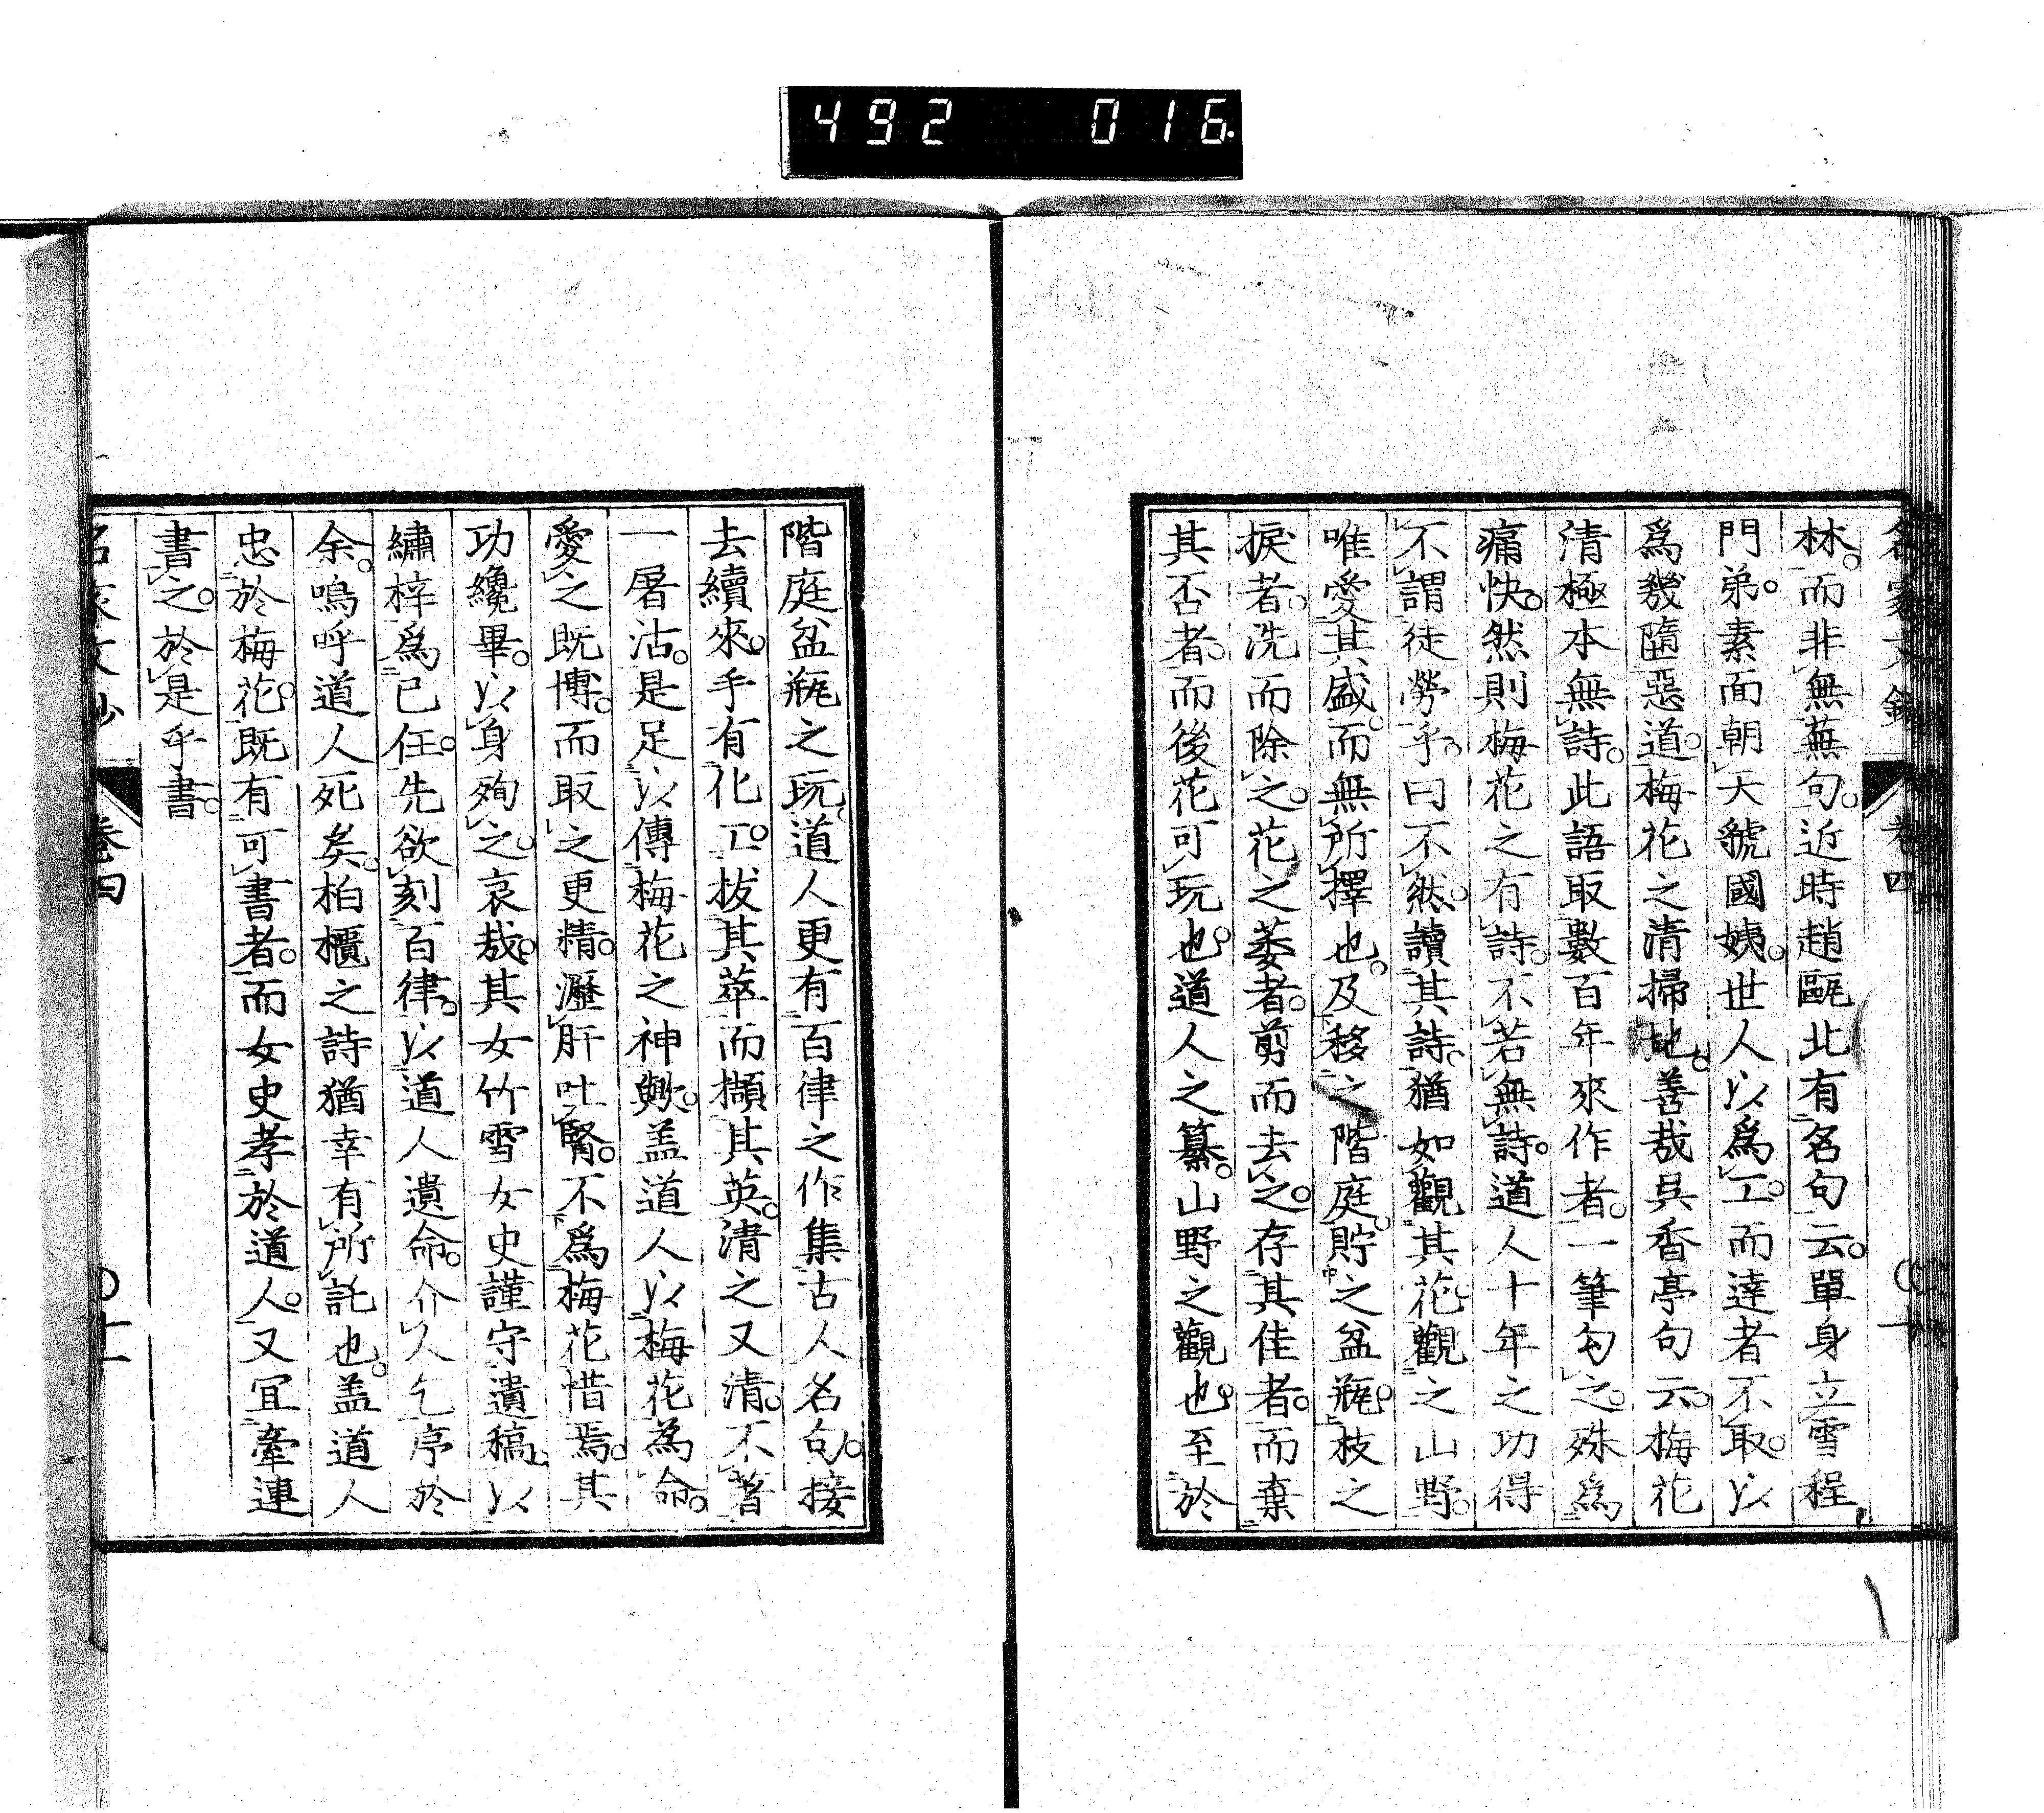 492 016
林。而非無蕪句。近時趙甌北有名句云。單身立雪程
門弟。素面朝天虢國姨。世人以爲工。而達者不取。以
爲幾墮惡道。梅花之清掃地。善哉吳香亭句云。梅花
清極本無詩。此語取數百年來作者。一筆勾之。殊爲
痛快。然則梅花之有詩。不若無詩。道人十年之功得
不謂徒勞乎。曰不然。讀其詩。猶如觀其花。觀之山野。
唯愛其盛。而無所擇也。及移之階庭。貯之盆瓶。枝之
捩者。洗而除之。花之萎者。剪而去之。存其佳者。而棄
其否者。而後花可玩也。道人之纂。山野之觀也。至於
階庭盆瓶之玩。道人更有百律之作。集古人名句。接
去續來。手有化工。拔其萃而擷其英。清之又清。不著
一屠沽。是足以傳梅花之神歟。盖道人以梅花為命。
愛之既博。而取之更精。瀝肝吐腎。不爲梅花惜焉。其
功纔畢。以身殉之。哀哉。其女竹雪女史謹守遺稿。以
繡梓爲己任。先欲刻百律。以道人遺命。介人乞序於
余。嗚呼道人死矣。柏櫃之詩猶幸有所託也。盖道人
忠於梅花。既有可書者。而女史孝於道人。又宜牽連
書之。於是乎書。
卷四